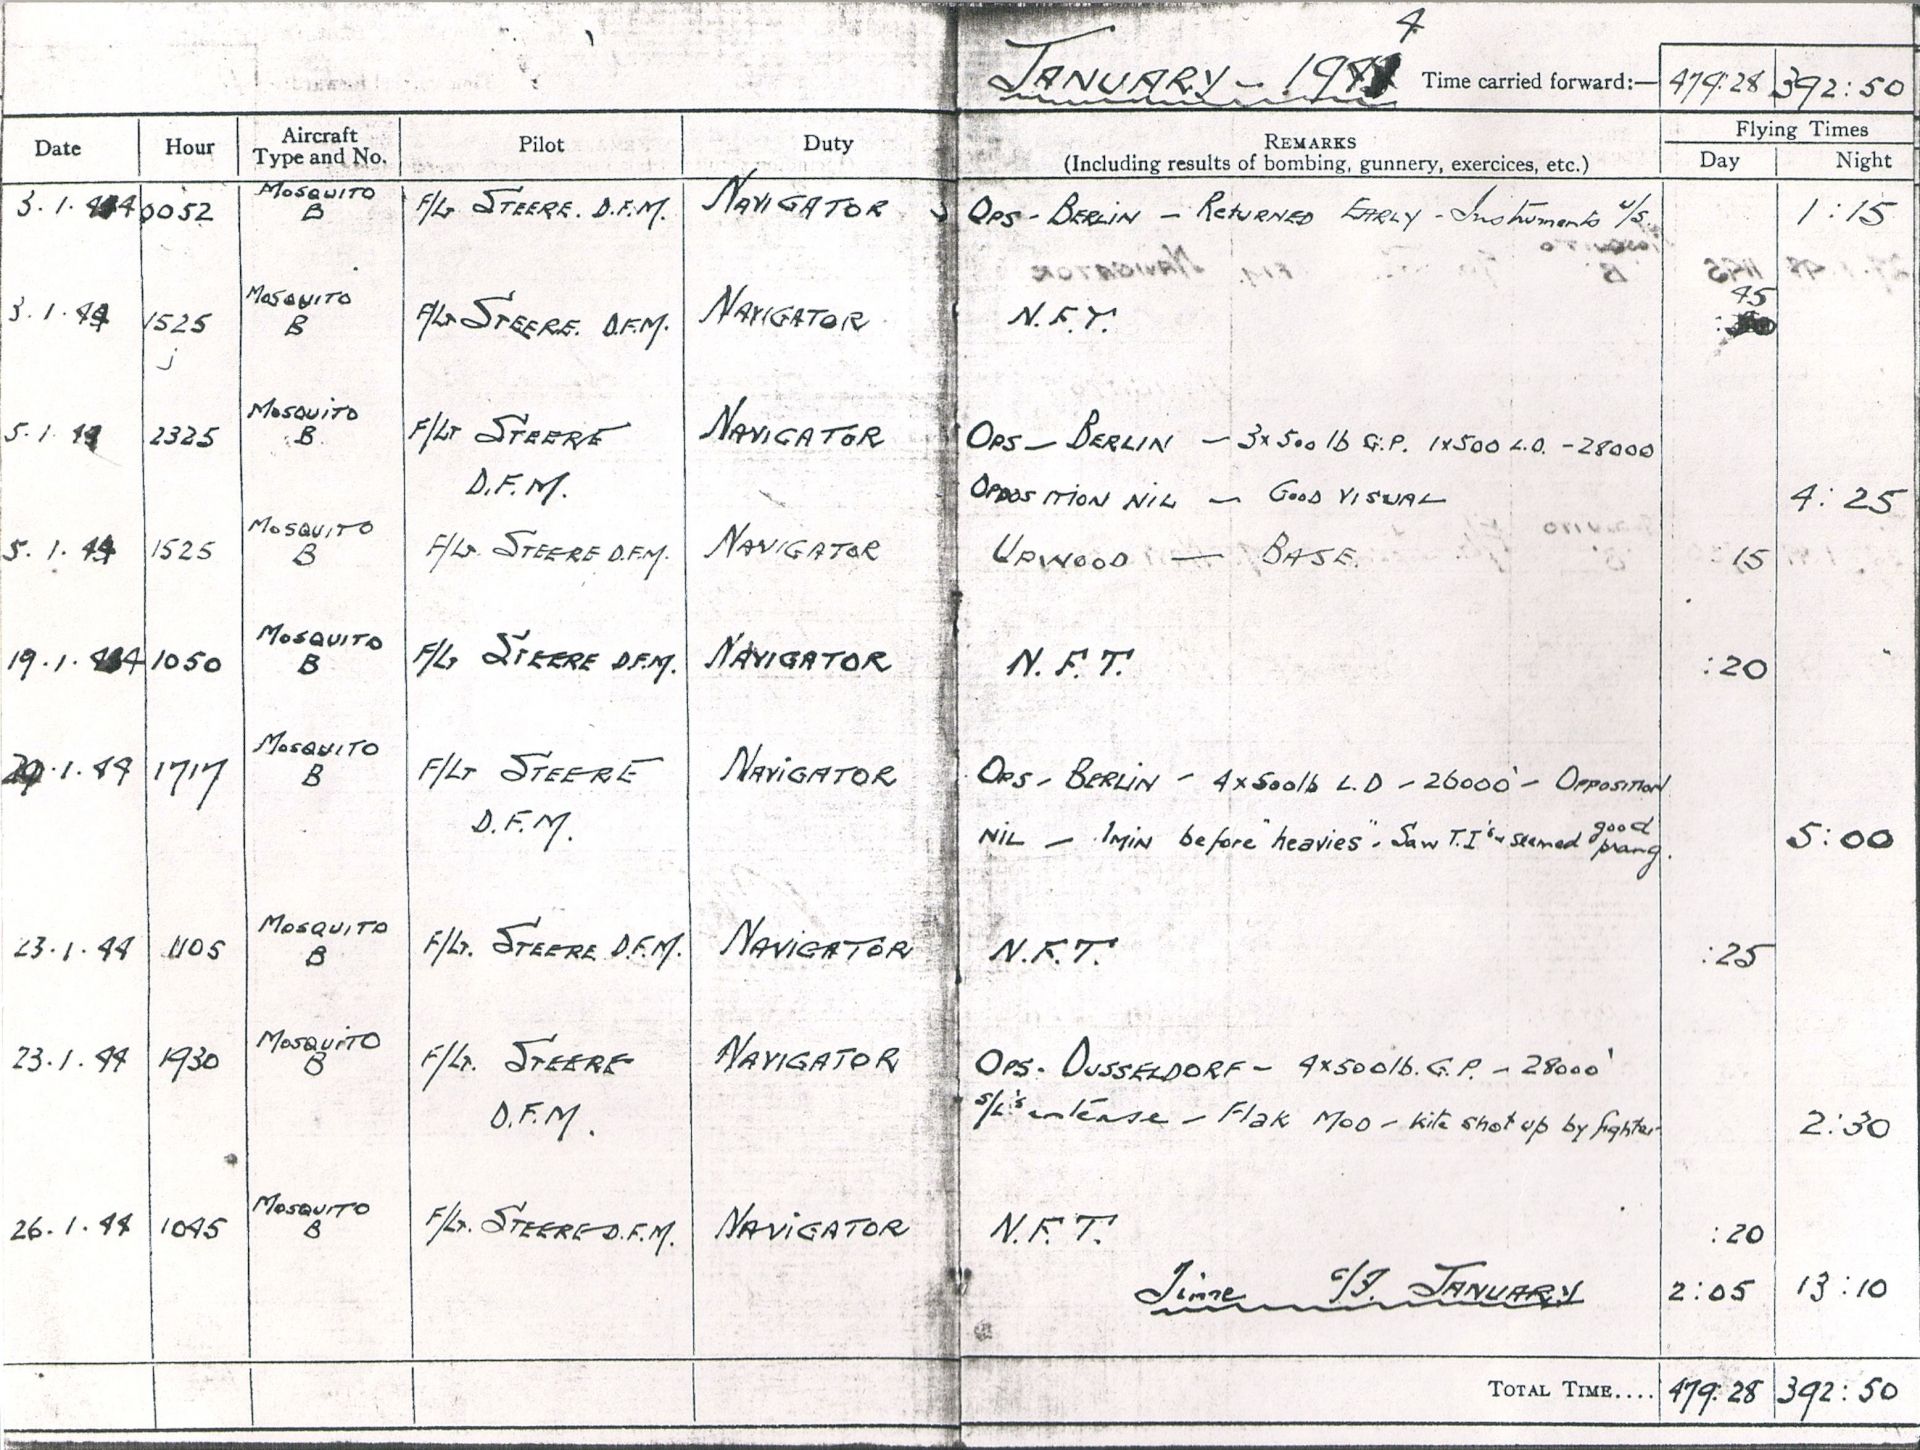 JANUARY - 1944 Time carried forward:— 479:28 392:50
Date Hour Aircraft Type and No. Pilot Duty REMARKS (Including results of bombing, gunnery, exercices, etc.) Flying Times Day Night
3.1.44 0052 MOSQUITO B F/Lt STEERE. D.F.M. NAVIGATOR OPS - BERLIN - RETURNED EARLY - Instruments u/s. 1:15
3.1.44 1525 MOSQUITO B F/Lt STEERE. D.F.M. NAVIGATOR N.F.T. :45
5.1.44 2325 MOSQUITO B F/Lt STEERE NAVIGATOR OPS - BERLIN - 3x500 lb G.P. 1x500 L.D. - 28000
D.F.M. OPPOSITION NIL - GOOD VISUAL 4:25
5.1.44 1525 MOSQUITO B F/Lt. STEERE D.F.M. NAVIGATOR UPWOOD — BASE. :15
19.1.44 1050 MOSQUITO B F/Lt STEERE D.F.M. NAVIGATOR N.F.T. :20
.1.44 1717 MOSQUITO B F/Lt STEERE NAVIGATOR OPS - BERLIN - 4x500lb L.D - 26000' - OPPOSITION
D.F.M. NIL - 1min before "heavies". Saw T.I's - seemed good prang. 5:00
23.1.44 1105 MOSQUITO B F/Lt. STEERE D.F.M. NAVIGATOR N.F.T. :25
23.1.44 1930 MOSQUITO B F/Lt. STEERE NAVIGATOR OPS - DUSSELDORF - 4x500lb. G.P. - 28000'
D.F.M. S/L's intense - Flak MOD - kite shot up by fighter 2:30
26.1.44 1045 MOSQUITO B F/Lt. STEERE D.F.M. NAVIGATOR N.F.T. :20
Time c/f. JANUARY 2:05 13:10
TOTAL TIME.... 479:28 392:50